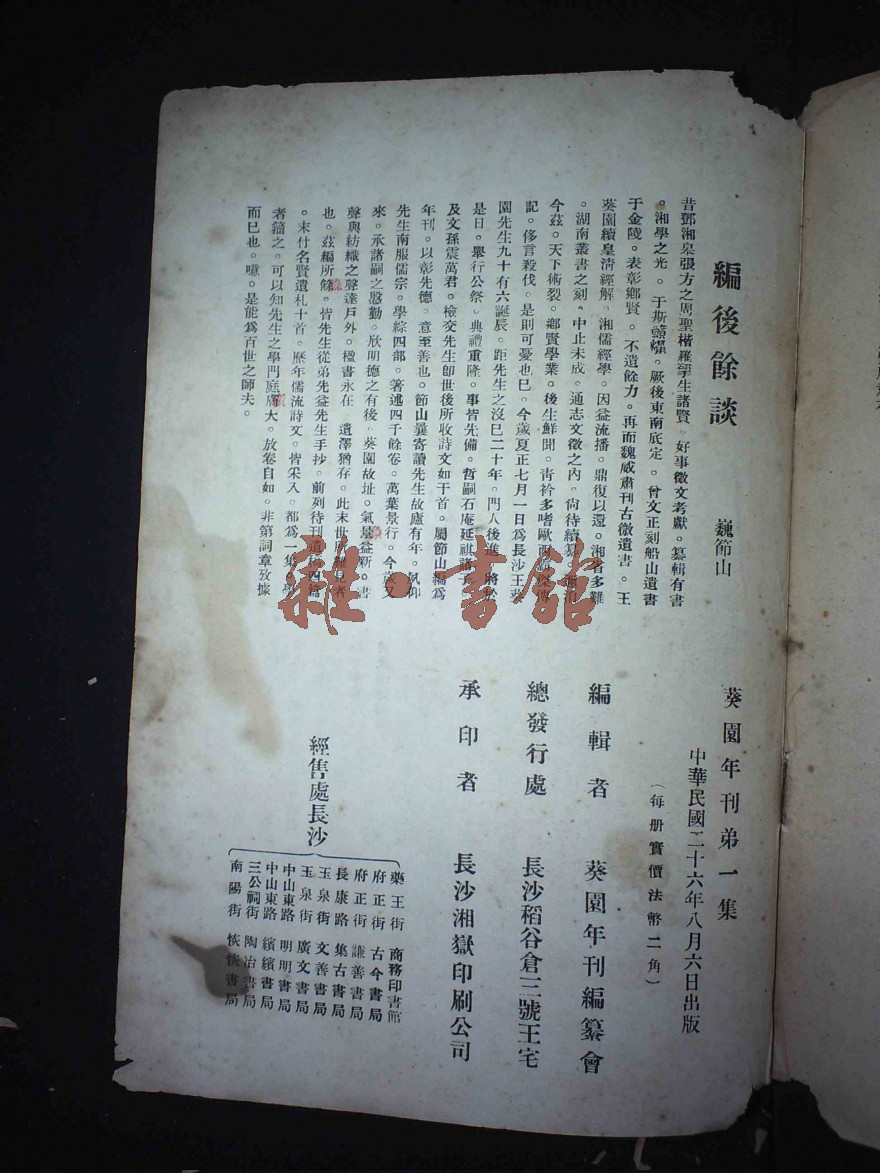 編後餘談
巍節山
昔鄧湘皋張方之周聖楷羅孚生諸賢。好事徵文考獻。纂輯有書
。湘學之光。于斯 。厥後東南底定。曾文正刻船山遺書
于金陵。表彰鄉賢。不遺餘力。再而魏威肅刊古微遺書。王
葵園續皇淸經解。湘儒經學。因益流播。鼎復以還。湘省多難
。湖南叢書之刻。中止未成。通志文徵之內。尙待續纂。
今茲。天下術裂。鄉賢學業。後生鮮聞。靑衿多嗜歐西
記。侈言殺伐。是則可憂也巳。今歲夏正七月一日爲長沙王葵
園先生九十有六誕辰。距先生之沒巳二十年。門人後進。將於
是日。舉行公祭。典禮重隆。事皆先備。哲嗣石庵延祺諸
及文孫震萬君。檢交先生卽世後所收詩文如干首。屬節山編爲
年刊。以彰先德。意至善也。節山曩寄讀先生故廬有年。夙仰
先生南服儒宗。學綜四部。著述四千餘卷。萬葉景行。今歲又
來。承諸嗣之慇勤。欣明德之有後。葵園故址。氣景益新。書
聲與紡織之聲達戶外。楹書永在。遺澤猶存。此末世所 見者
也。茲編所餘。皆先生從弟先益先生手抄。前列待刊遺稿四篇
。末付名賢遺札十首。歷年儒流詩文。皆采入。都爲一集。學
者籀之。可以知先生之學門庭廣大。放卷自如。非第詞章攷據
而巳也。噫。是能爲百世之師夫。
葵園年刊弟一集
中華民國二十六年八月六日出版
（每册實價法幣二角）
編輯者 葵園年刊編纂會
總發行處 長沙稻谷倉三號王宅
承印者 長沙湘嶽印刷公司
經售處長沙
藥王街 商務印書館
府正街 古今書局
府正街 謙善書局
長康路 集古書局
玉泉街 文善書局
玉泉街 廣文書局
中山東路 明明書局
中山東路 繽繽書局
三公祠街 陶冶書局
南陽街 恢恢書局
雜·書館